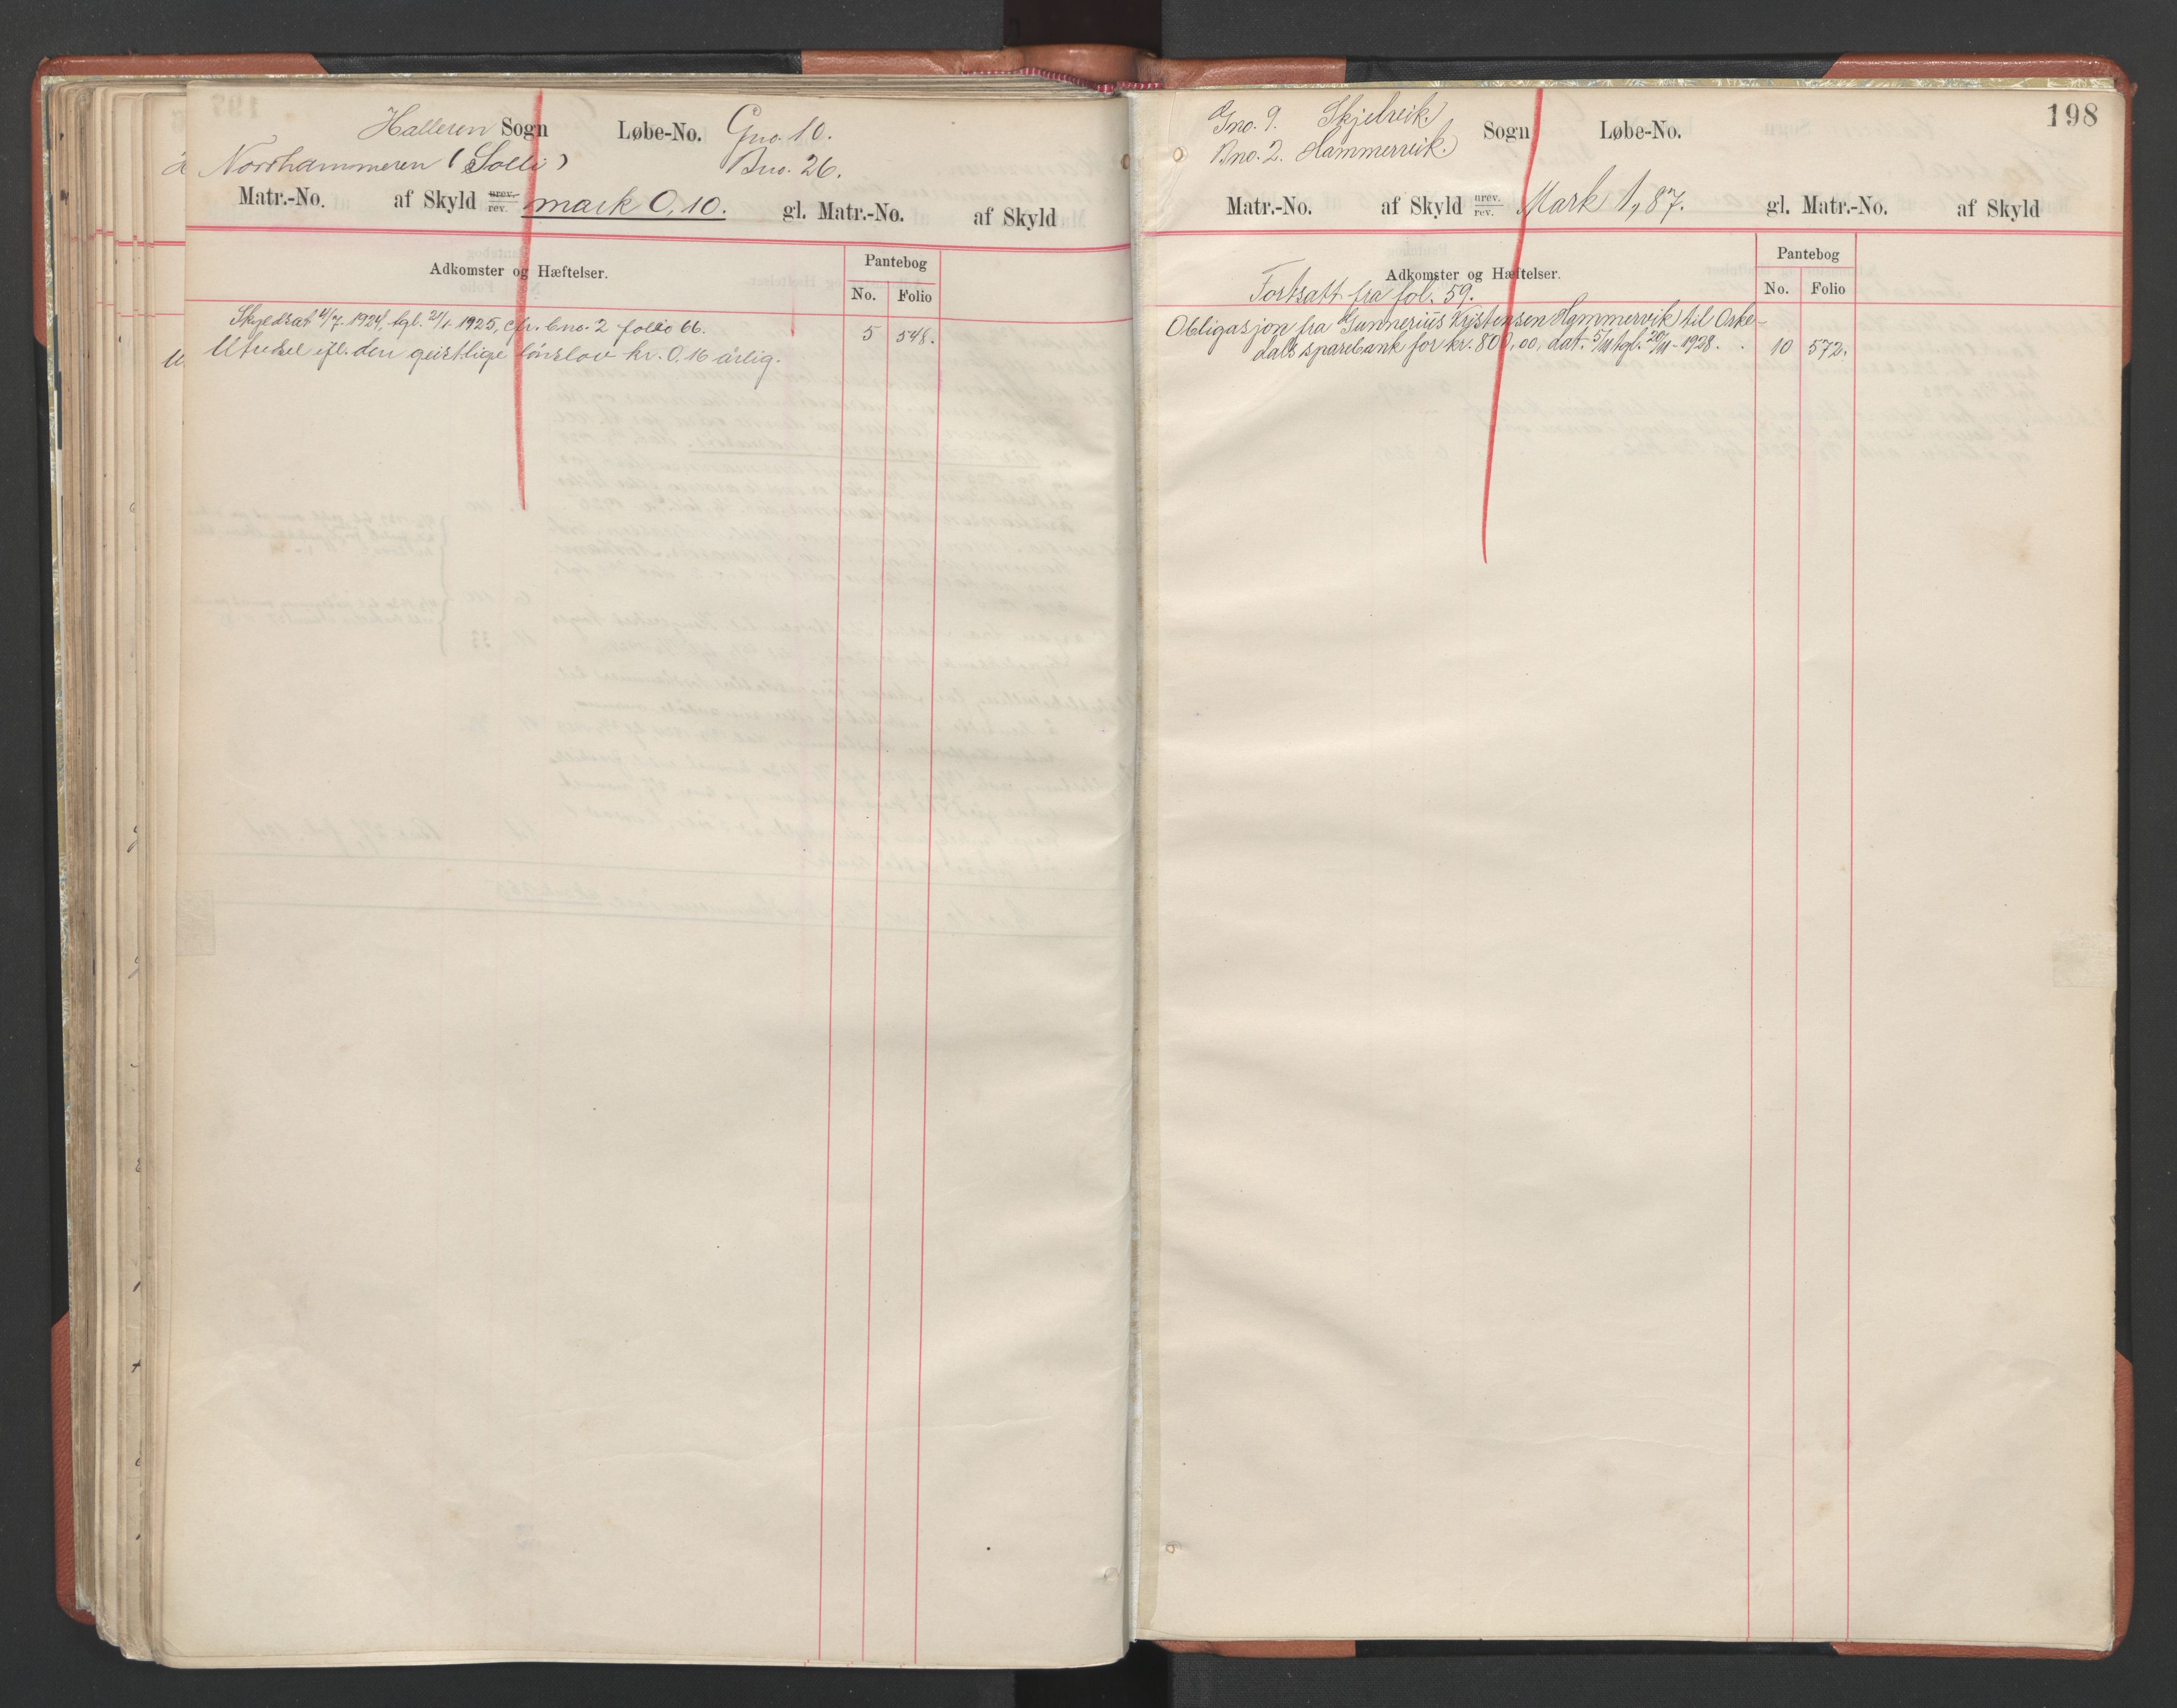 Halleren Sogn Løbe-No. Gno. 10.
Nordhammeren (Solli) Bno. 26.
Matr.-No. af Skyld urev. rev. mark 0,10. gl. Matr.-No. af Skyld
Adkomster og Hæftelser. Pantebog
No. Folio
Skyldsat 4/7-1924, tgl. 21/1-1925, cfr. bno. 2 folio 66. 5 548.
Utredsel efl. den geistlige lønslov kr. 0.16 årlig.
198
Gno. 9. Skjelvik. Sogn Løbe-No.
Bno. 2. Hammervik.
Matr.-No. af Skyld urev. rev. Mark 1,87. gl. Matr.-No. af Skyld
Adkomster og Hæftelser. Pantebog
Fortsatt fra fol. 59. No. Folio
Obligasjon fra Gunnerius Kristensen Hammervik til Orke-
dals sparebank for kr. 800,00, dat. 5/11 tgl. 20/11-1928. 10 572.